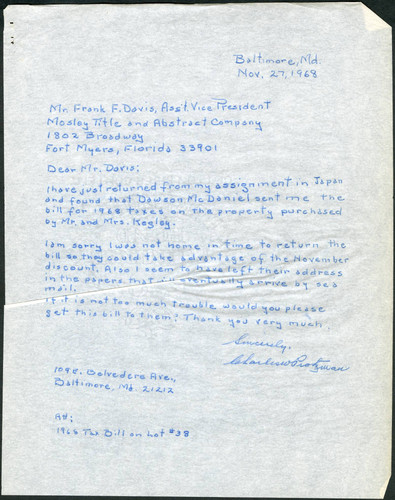 Baltimore, Md.
Nov. 27, 1968
Mr. Frank F. Davis, Asst. Vice President
Mosley Title and Abstract Company
1802 Broadway
Fort Myers, Florida 33901
Dear Mr. Davis;
I have just returned from my assignment in Japan
and found that Dawson McDaniel sent me the
bill for 1968 taxes on the property purchased
by Mr. and Mrs. Kegley.
I am sorry I was not home in time to return the
bill so they could take advantage of the November
discount. Also I seem to have left their address
in the papers that will eventually arrive by sea
mail.
If it is not too much trouble would you please
get this bill to them? Thank you very much.
Sincerely,
Charles W
Belvedere Ave.,
Baltimore, Md. 21212
1968 Tax Bill on Lot #38